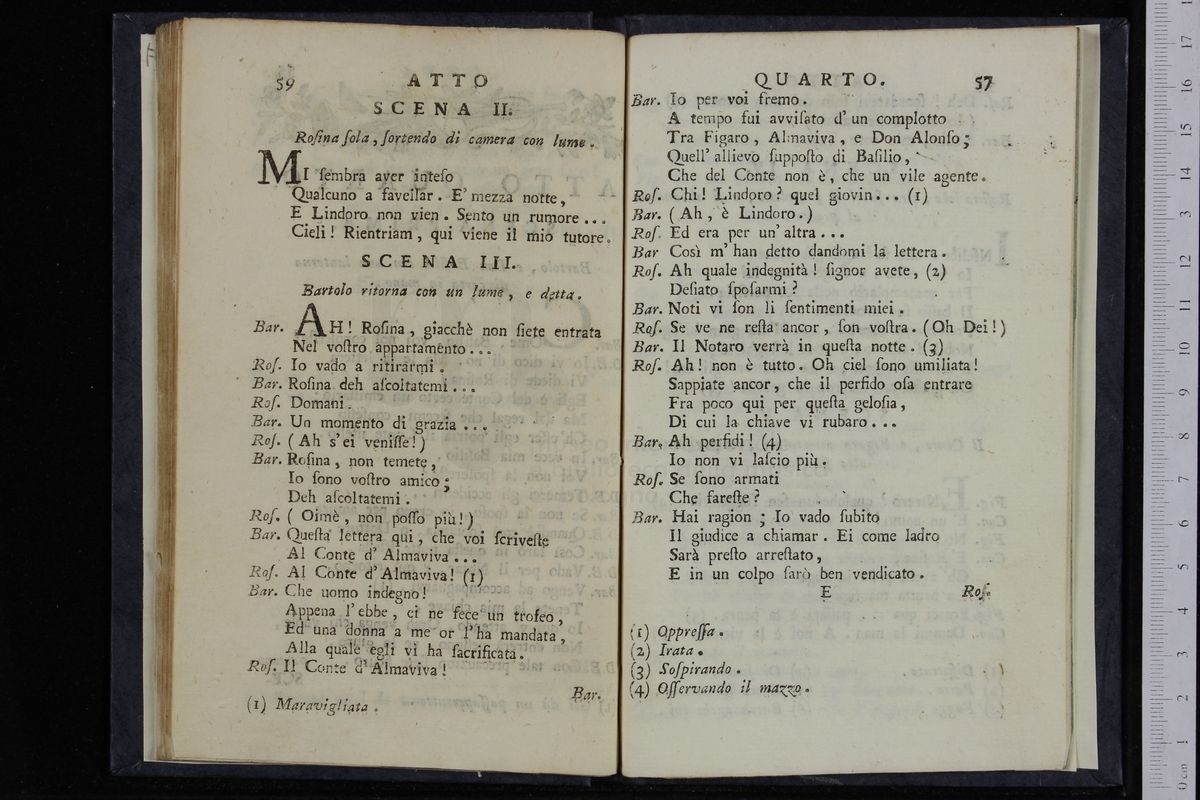 59 ATTO
SCENA II.
Roſina ſola, ſortendo di camera con lume.
MI ſembra aver inteſo
Qualcuno a favellar. E' mezza notte,
E Lindoro non vien. Sento un rumore...
Cieli! Rientriam, qui viene il mio tutore.
SCENA III.
Bartolo ritorna con un lume, e detta.
Bar. AH! Roſina, giacchè non ſiete entrata
Nel voſtro appartamento...
Roſ. Io vado a ritirarmi.
Bar. Roſina deh aſcoltatemi...
Roſ. Domani.
Bar. Un momento di grazia...
Roſ. (Ah s'ei veniſſe!)
Bar. Roſina, non temete,
Io ſono voſtro amico;
Deh aſcoltatemi.
Roſ. (Oimè, non poſſo più!)
Bar. Queſta lettera qui, che voi ſcriveſte
Al Conte d'Almaviva...
Roſ. Al Conte d'Almaviva! (1)
Bar. Che uomo indegno!
Appena l'ebbe, ei ne fece un trofeo,
Ed una donna a me or l'ha mandata,
Alla quale egli vi ha ſacrificata.
Roſ. Il Conte d'Almaviva!
Bar.
(1) Maravigliata.
QUARTO. 57
Bar. Io per voi fremo.
A tempo fui avviſato d'un complotto
Tra Figaro, Almaviva, e Don Alonſo;
Quell'allievo ſuppoſto di Baſilio,
Che del Conte non è, che un vile agente.
Roſ. Chi! Lindoro? quel giovin... (1)
Bar. (Ah, è Lindoro.)
Roſ. Ed era per un'altra...
Bar Così m'han detto dandomi la lettera.
Roſ. Ah quale indegnità! ſignor avete, (2)
Deſiato ſpoſarmi?
Bar. Noti vi ſon li ſentimenti miei.
Roſ. Se ve ne reſta ancor, ſon voſtra. (Oh Dei!)
Bar. Il Notaro verrà in queſta notte. (3)
Roſ. Ah! non è tutto. Oh ciel ſono umiliata!
Sappiate ancor, che il perfido oſa entrare
Fra poco qui per queſta geloſia,
Di cui la chiave vi rubaro...
Bar. Ah perfidi! (4)
Io non vi laſcio più.
Roſ. Se ſono armati
Che fareſte?
Bar. Hai ragion; Io vado ſubito
Il giudice a chiamar. Ei come ladro
Sarà preſto arreſtato,
E in un colpo ſarò ben vendicato.
E Roſ.
(1) Oppreſſa.
(2) Irata.
(3) Soſpirando.
(4) Oſſervando il mazzo.